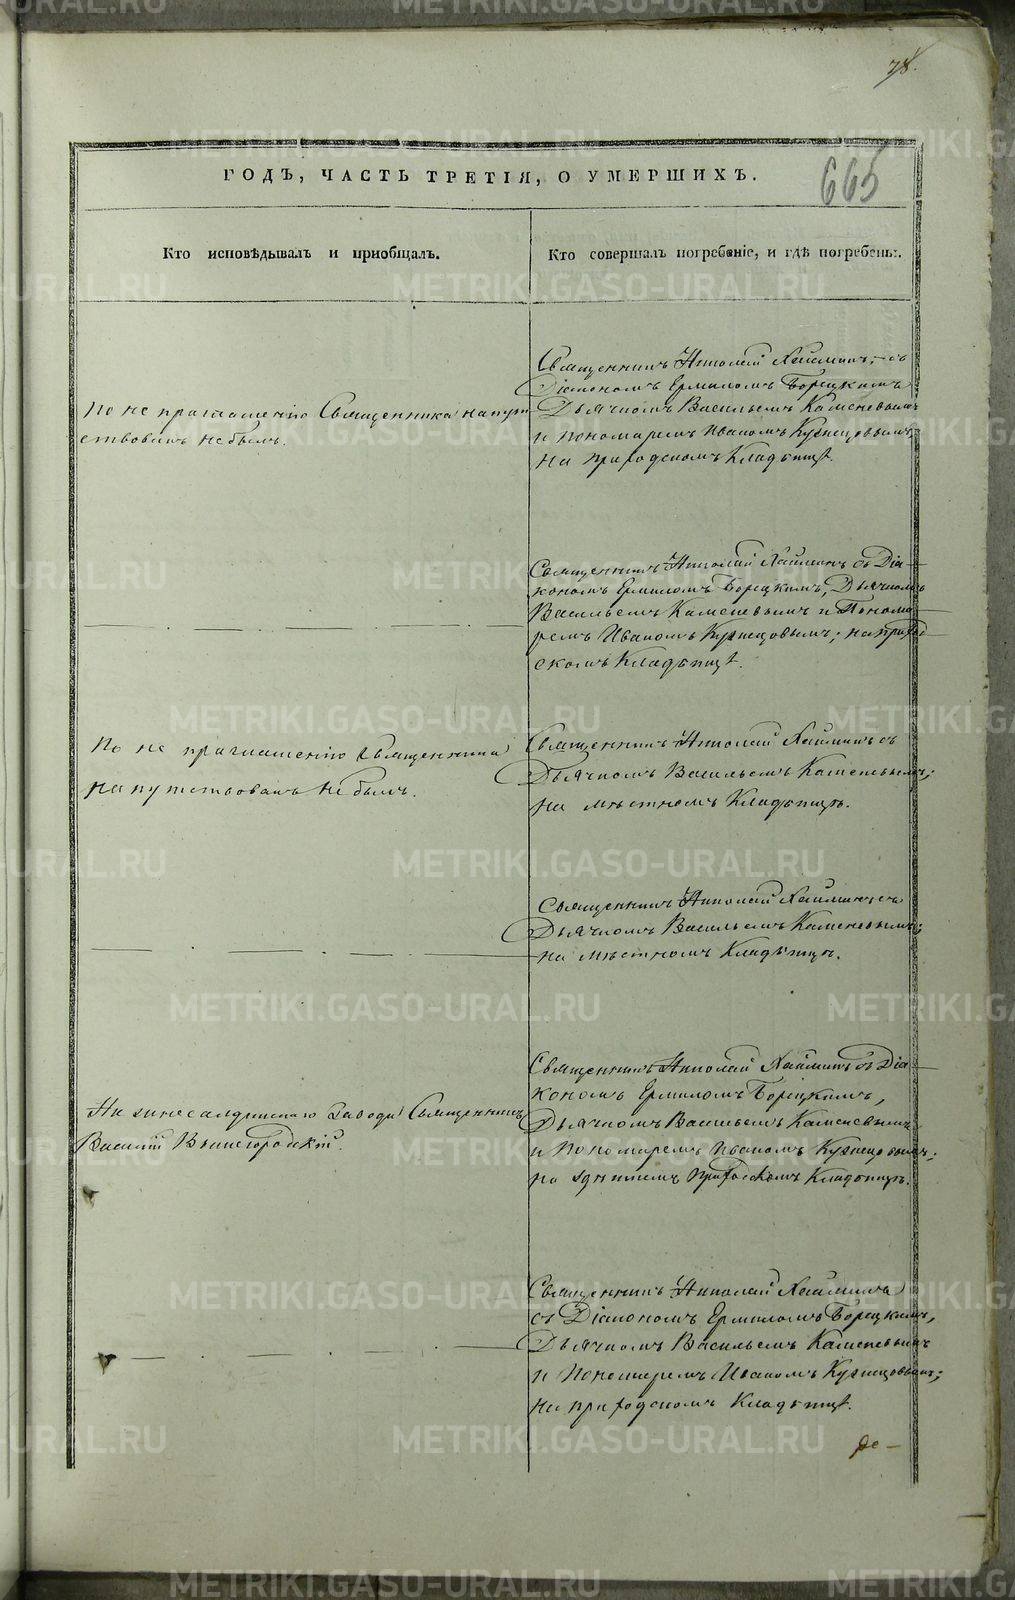 78.
665
ГОДЪ, ЧАСТЬ ТРЕТІЯ, О УМЕРШИХЪ.
Кто исповѣдывалъ и пріобщалъ.
Кто совершалъ погребеніе, и гдѣ погребены.
По не приглашенію Священника напут
ствованъ не былъ.
Священникъ Николай Хайминъ, съ
Діакономъ Ермиломъ Борецкимъ
Дьячкомъ Васильемъ Каменевымъ
и пономаремъ Иваномъ Кузнецовымъ,
на приходскомъ Кладбищѣ.
Священникъ Николай Хайминъ съ Діа-
кономъ Ермиломъ Борецкимъ, Дьячкомъ
Васильемъ Каменевымъ и Понома-
ремъ Иваномъ Кузнецовымъ; на прихо-
скомъ Кладбищѣ.
По не приглашенію Священника
напутствованъ не былъ.
Священникъ Николай Хайминъ съ
Дьячкомъ Васильемъ Каменевымъ;
на мѣстномъ Кладбищѣ.
Священникъ Николай Хайминъ съ
Дьячкомъ Васильемъ Каменевымъ;
на мѣстномъ Кладбищѣ.
Нижнесалдинскаго Завода Священникъ
Василій Вышегородскій.
Священникъ Николай Хайминъ съ Діа-
кономъ Ермиломъ Борецкимъ,
Дьячкомъ Васильемъ Каменевымъ
и Пономаремъ Иваномъ Кузнецовымъ;
на здѣшнемъ Приходскомъ Кладбищѣ.
Священникъ Николай Хайминъ
съ Діакономъ Ермиломъ Борецкимъ,
Дьячкомъ Васильемъ Каменевымъ
и Пономаремъ Иваномъ Кузнецовымъ;
на приходскомъ Кладбищѣ.
METRIKI.GASO-URAL.RU